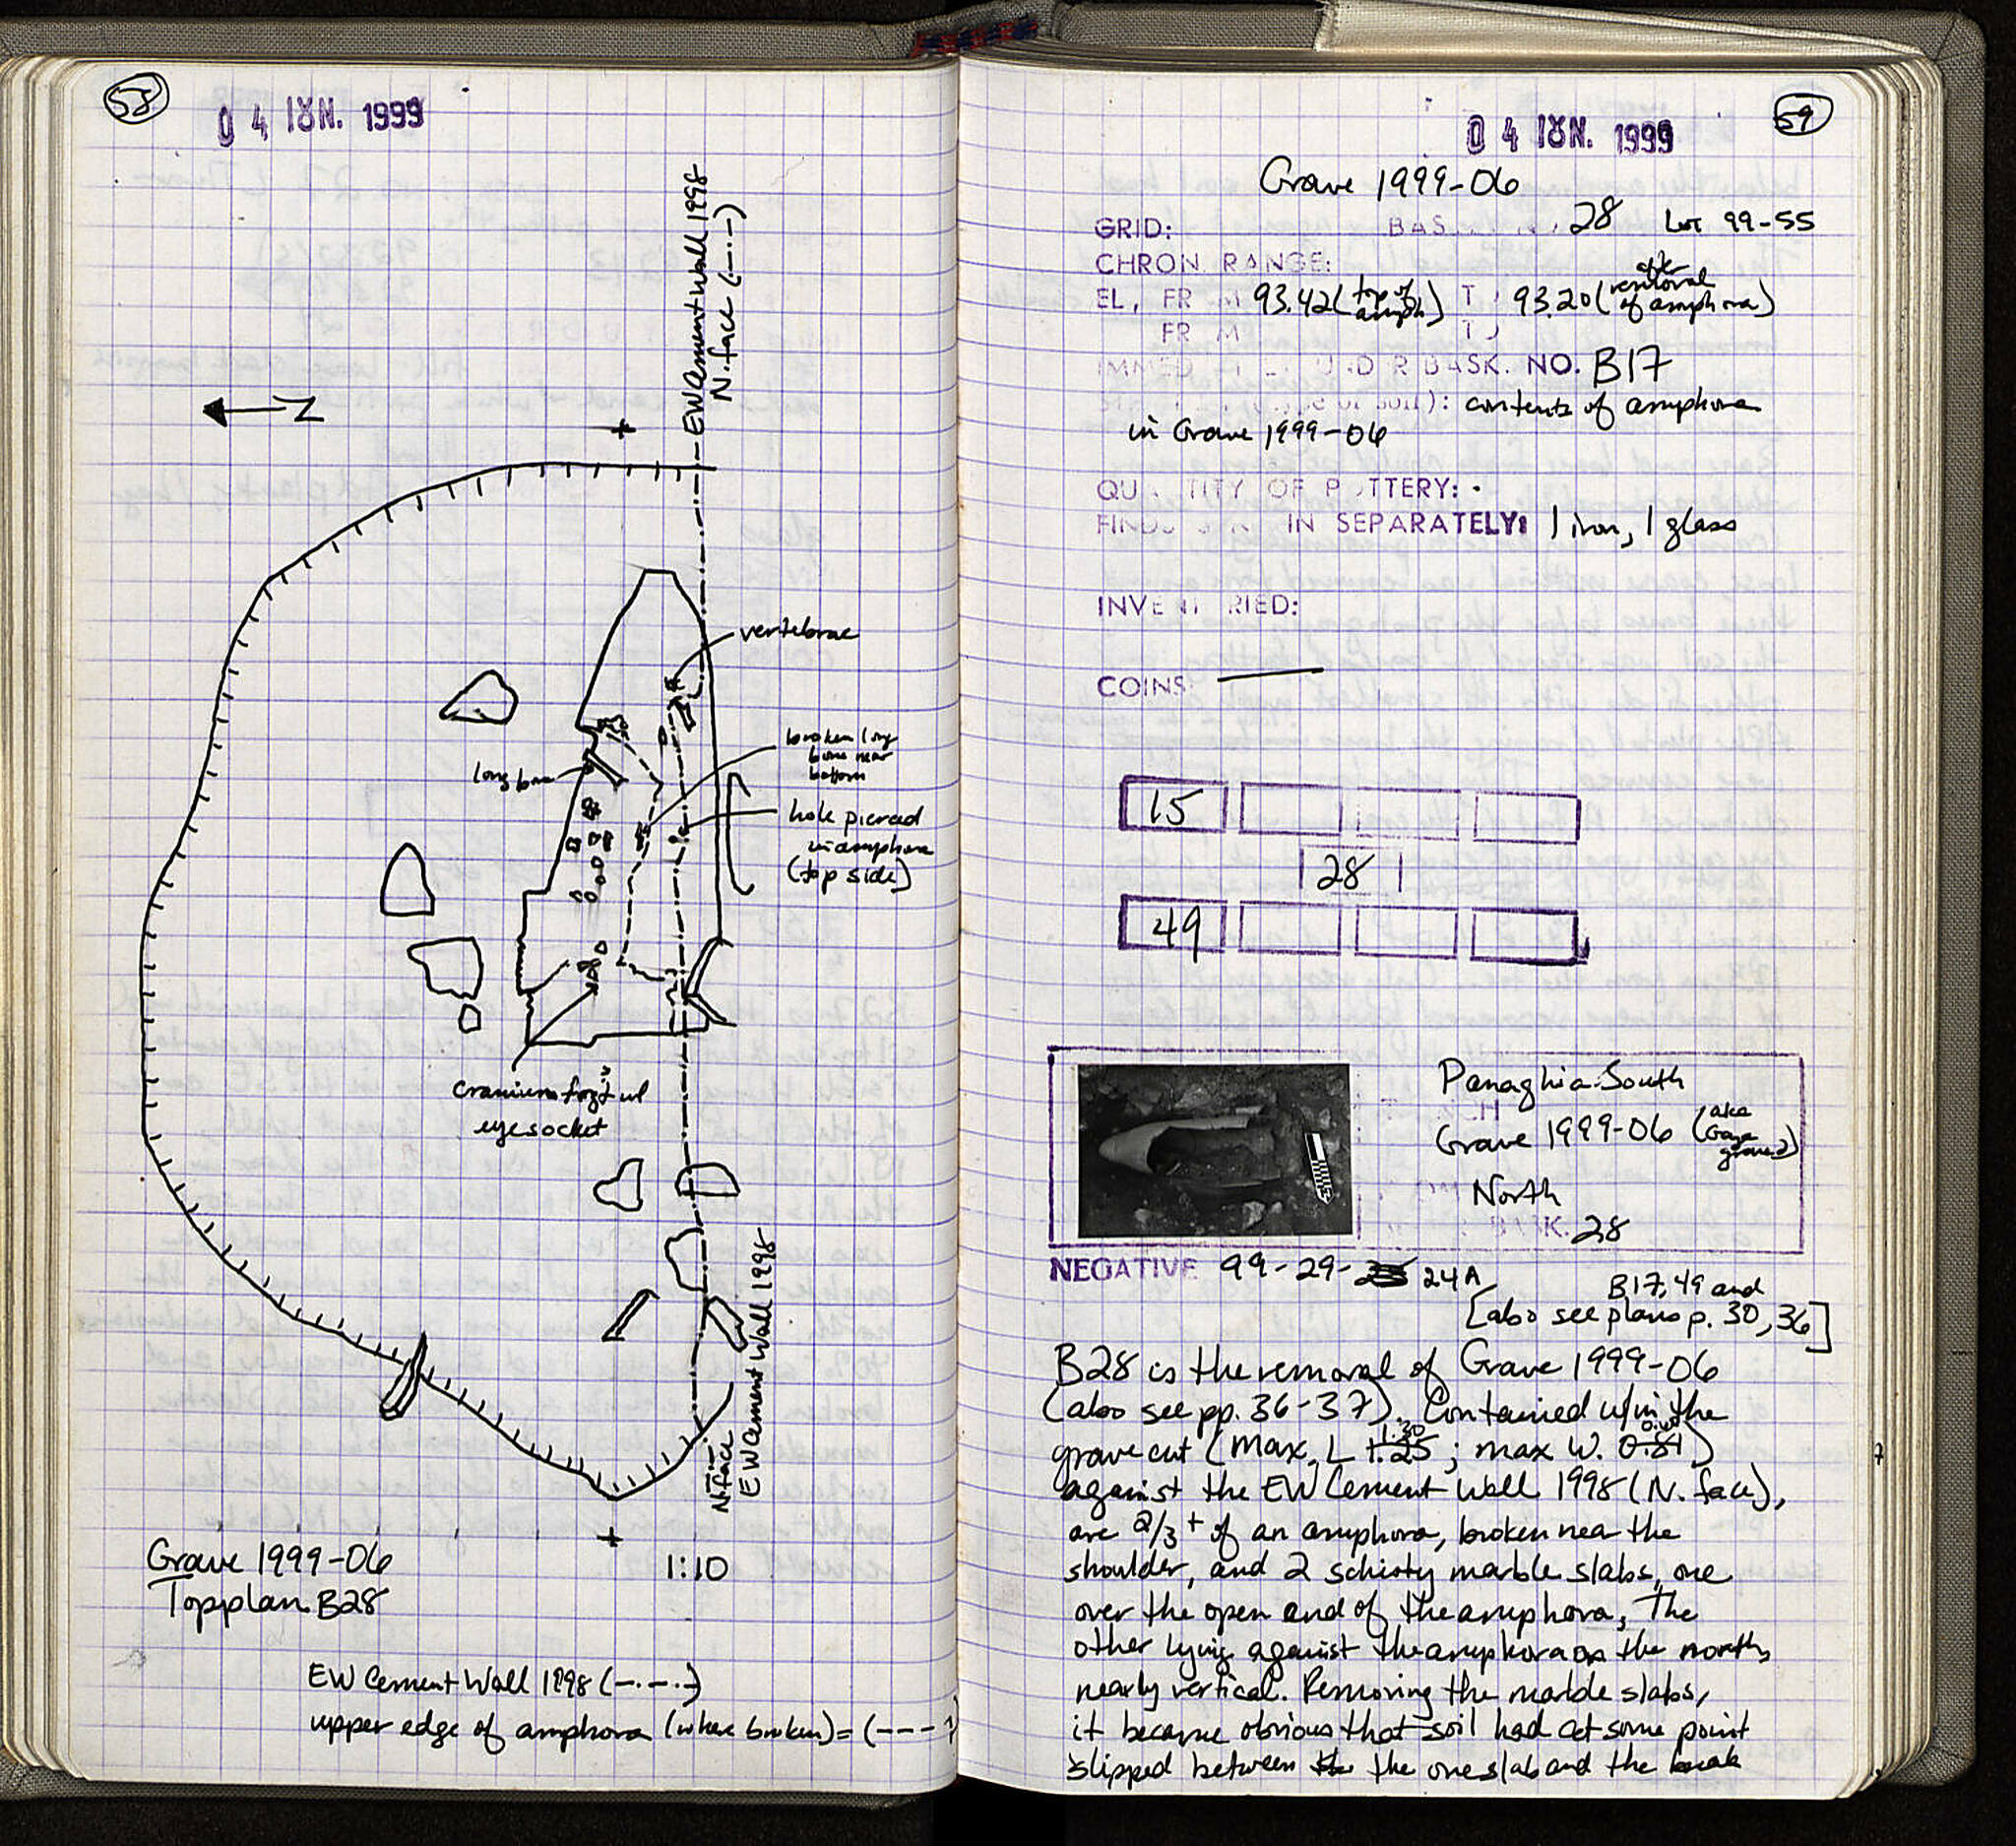 58
04 ΙΟΥΝ. 1999
EW Cement Wall 1998
N. face (-·-·-)
N
vertebrae
broken long
bone near
bottom
long bone
hole pierced
in amphora
(top side)
cranium frgt w/
eye socket
N. face
EW Cement Wall 1998
Grave 1999-06
Top plan B28
1:10
EW Cement Wall 1998 (-·-·-)
upper edge of amphora (where broken) = (---)
59
04 ΙΟΥΝ. 1999
Grave 1999-06
GRID: 28 Lot 99-55
CHRON. RANGE:
EL, FR M 93.42 (top of amph) T 93.20 (after removal of amphora)
FR M T
UND R BASK. NO. B17
contents of amphora
in Grave 1999-06
QUANTITY OF POTTERY:
FINDS IN SEPARATELY: 1 iron, 1 glass
INVENT RIED:
COINS: —
15
28
49
Panaghia South
Grave 1999-06 (aka
North
BASK. 28
NEGATIVE 99-29- 24A
B17, 49 and
[also see plans p. 30, 36]
B28 is the removal of Grave 1999-06
(also see pp. 36-37). Contained w/in the
grave cut (max. L 1.30 1.25; max W. 0.81)
against the EW Cement Wall 1998 (N. face),
are 2/3+ of an amphora, broken near the
shoulder, and 2 schisty marble slabs, one
over the open end of the amphora, The
other lying against the amphora on the north,
nearly vertical. Removing the marble slabs,
it became obvious that soil had at some point
slipped between the the one slab and the break